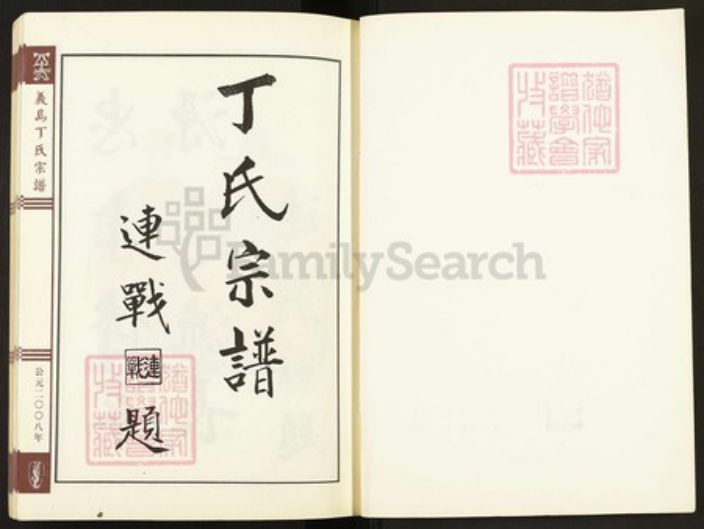 丁氏宗譜
連戰
連戰
題
義烏丁氏宗譜
公元二〇〇八年
猶他家
譜學會
收藏
猶他家
譜學會
收藏
FamilySearch